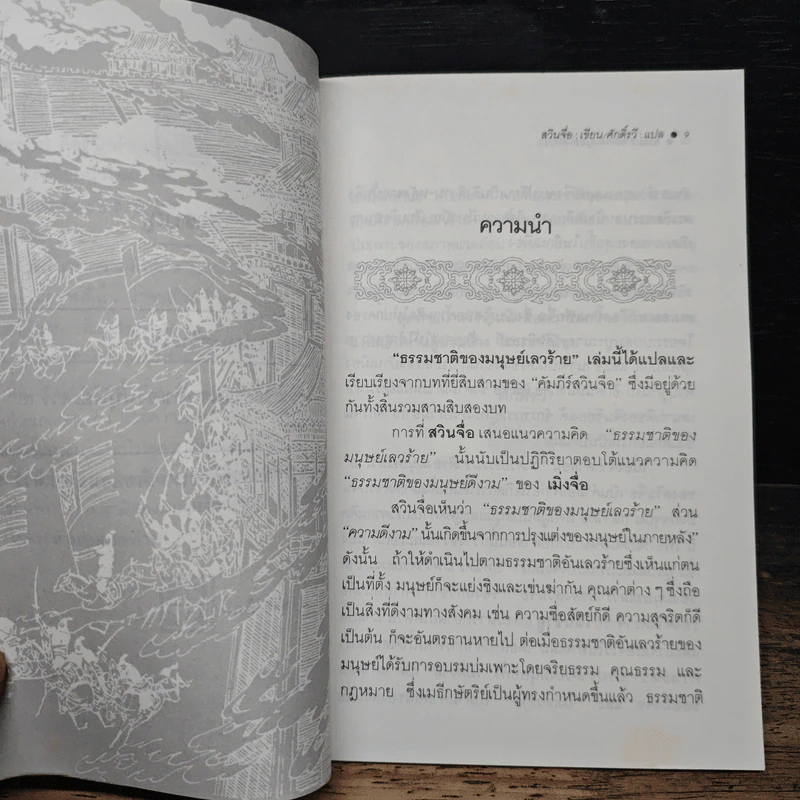 สวินจื่อ : เขียน/ศักดิ์รวี : แปล ● ๑
ความนำ
“ธรรมชาติของมนุษย์เลวร้าย” เล่มนี้ได้แปลและ
เรียบเรียงจากบทที่ยี่สิบสามของ “คัมภีร์สวินจื่อ” ซึ่งมีอยู่ด้วย
กันทั้งสิ้นรวมสามสิบสองบท
การที่ สวินจื่อ เสนอแนวความคิด “ธรรมชาติของ
มนุษย์เลวร้าย” นั้นนับเป็นปฏิกิริยาตอบโต้แนวความคิด
“ธรรมชาติของมนุษย์ดีงาม” ของ เมิ่งจื่อ
สวินจื่อเห็นว่า “ธรรมชาติของมนุษย์เลวร้าย” ส่วน
“ความดีงาม” นั้นเกิดขึ้นจากการปรุงแต่งของมนุษย์ในภายหลัง”
ดังนั้น ถ้าให้ดำเนินไปตามธรรมชาติอันเลวร้ายซึ่งเห็นแก่ตน
เป็นที่ตั้ง มนุษย์ก็จะแย่งชิงและเข่นฆ่ากัน คุณค่าต่าง ๆ ซึ่งถือ
เป็นสิ่งที่ดีงามทางสังคม เช่น ความซื่อสัตย์ก็ดี ความสุจริตก็ดี
เป็นต้น ก็จะอันตรธานหายไป ต่อเมื่อธรรมชาติอันเลวร้ายของ
มนุษย์ได้รับการอบรมบ่มเพาะโดยจริยธรรม คุณธรรม และ
กฎหมาย ซึ่งเมธีกษัตริย์เป็นผู้ทรงกำหนดขึ้นแล้ว ธรรมชาติ